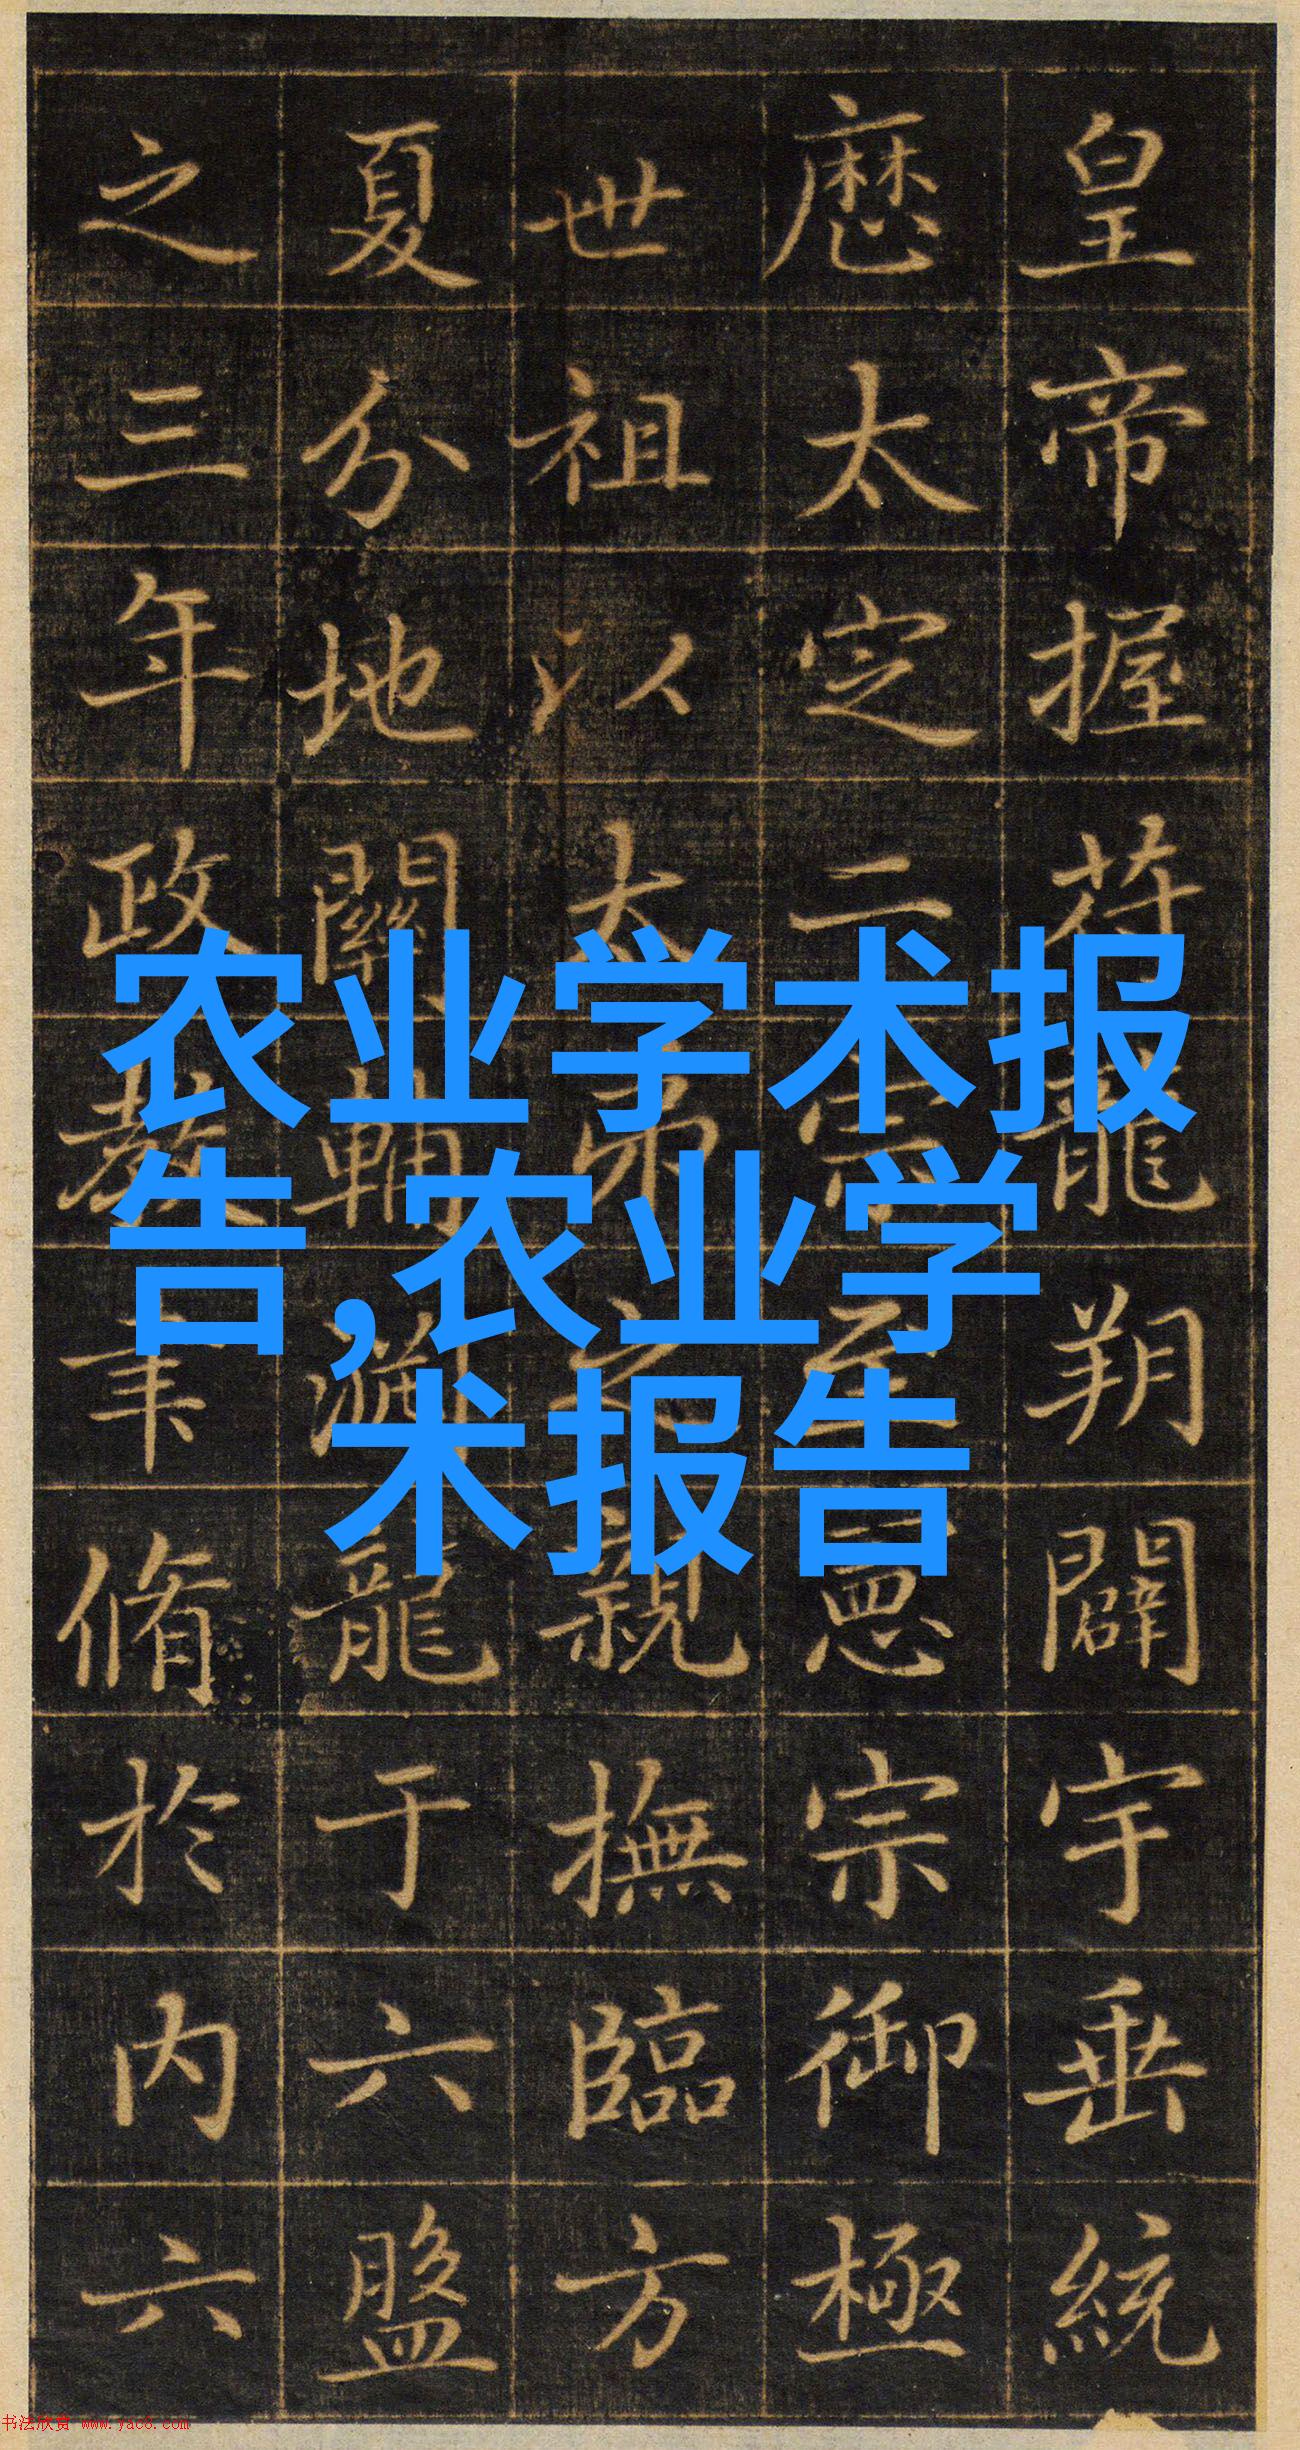 皇帝握符龍朔闢宇垂統
歷太定二宗至憲宗御極
世祖以太弟之親撫臨方
夏分地關輔龍于六盤
之三年政教聿脩於内六
农业学术报
告,农业学
术报告
书法欣赏 www.yac8.com